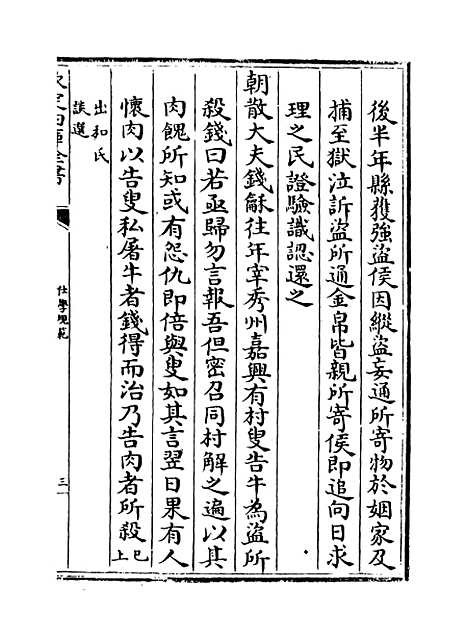 後半年縣獲強盜侯因縱盜妄通所寄物於姻家及
捕至獄泣訴盜所通金帛皆親所寄侯即追向日求
理之民證驗識認還之
朝散大夫錢龢往年宰秀州嘉興有村叟告牛為盜所
殺錢曰若亟歸勿言報吾但密召同村解之遍以其
肉餽所知或有怨仇即倍與叟如其言翌日果有人
懷肉以告叟私屠牛者錢得而治乃告肉者所殺已上
出和氏
談選
欽定四庫全書
仕學規範
三